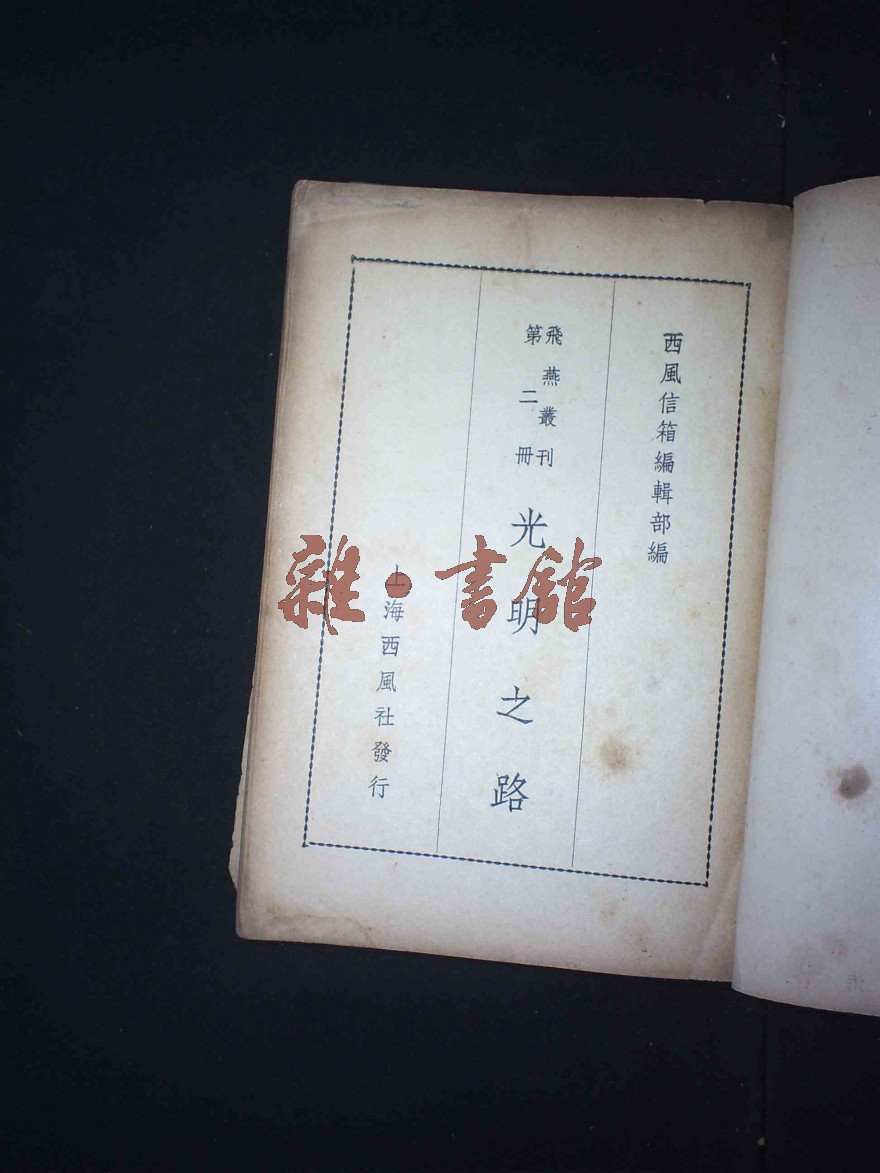 西風信箱編輯部編
飛燕叢刊
第二冊
光明之路
上海西風社發行
雜·書館